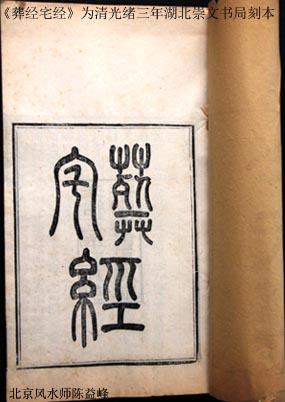 《葬经宅经》为清光绪三年湖北崇文书局刻本
葬
宅
經
北京风水师陈益峰